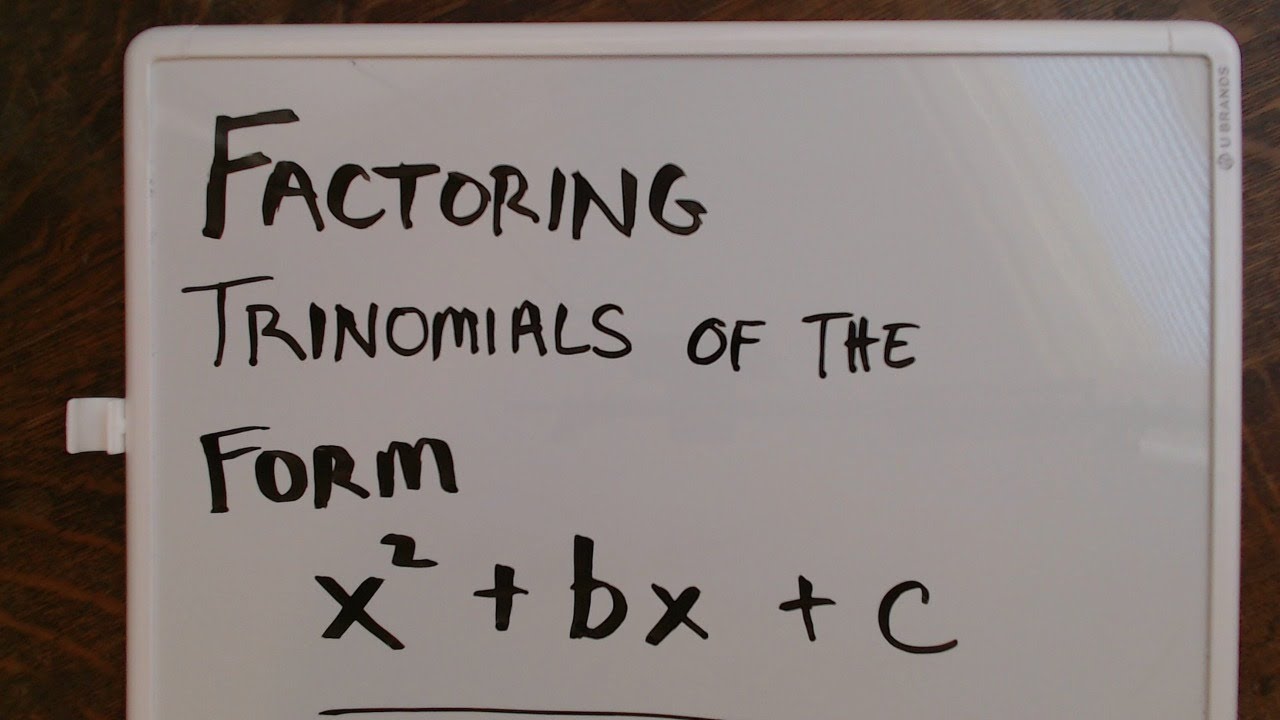 FACTORING
TRINOMIALS OF THE
FORM
x² + bx + c
U BRANDS